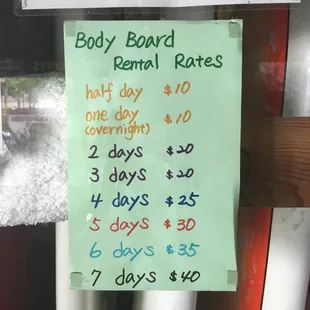 Body Board
Rental Rates
half day $10
one day $10
(overnight)
2 days $20
3 days $20
4 days $25
5 days $30
6 days $35
7 days $40